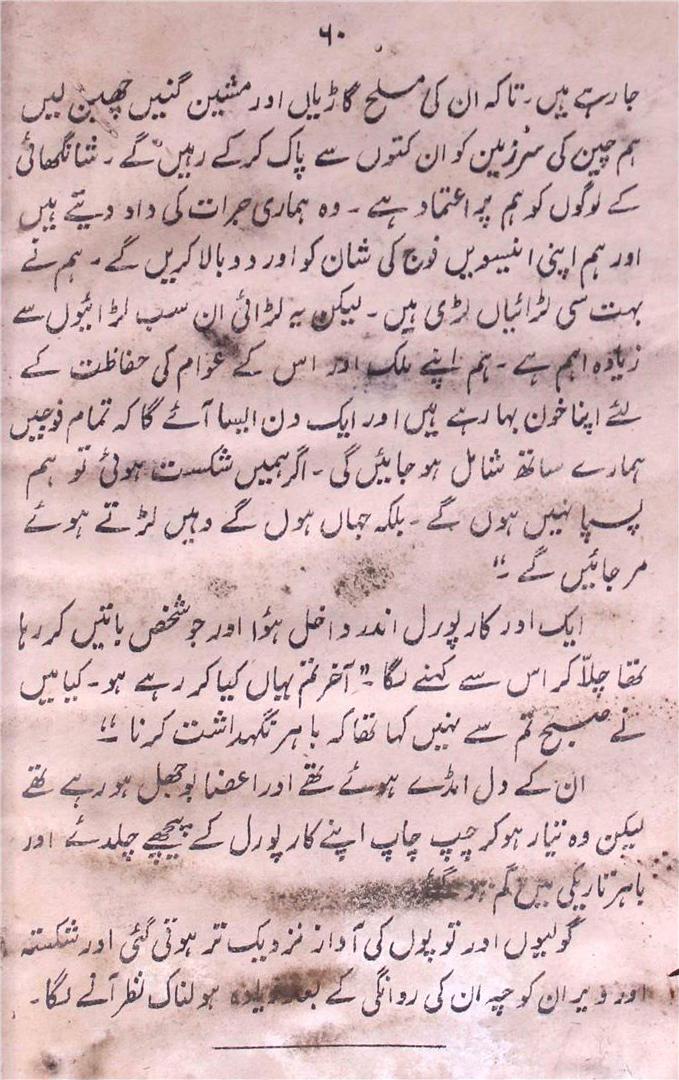 ۶۰
جا رہے ہیں۔ تاکہ ان کی مسلح گاڑیاں اور مشین گنیں چھین لیں
ہم چین کی سرزمین کو ان کتوں سے پاک کرکے رہیں گے۔ شانگھائی
کے لوگوں کو ہم پہ اعتماد ہے۔ وہ ہماری جرات کی داد دیتے ہیں
اور ہم اپنی انیسویں فوج کی شان کو اور دوبالا کریں گے۔ ہم نے
بہت سی لڑائیاں لڑی ہیں۔ لیکن یہ لڑائی ان سب لڑائیوں سے
زیادہ اہم ہے۔ ہم اپنے ملک اور اس کے عوام کی حفاظت کے
لئے اپنا خون بہا رہے ہیں اور ایک دن ایسا آئے گا کہ تمام فوجیں
ہمارے ساتھ شامل ہو جایئں گی۔ اگر ہمیں شکست ہوئی تو ہم
پسپا نہیں ہوں گے۔ بلکہ جہاں ہوں گے وہیں لڑتے ہوئے
مر جائیں گے۔"
ایک اور کارپورل اندر داخل ہؤا اور جو شخص باتیں کر رہا
تھا چلّا کر اس سے کہنے لگا۔ "آخر تم یہاں کیا کر رہے ہو۔ کیا میں
نے صبح تم سے نہیں کہا تھا کہ باہر نگہداشت کرنا۔"
ان کے دل امڈے ہوئے تھے اور اعضا بوجھل ہو رہے تھے
لیکن وہ تیار ہو کر چپ چاپ اپنے کارپورل کے پیچھے چلدئے اور
باہر تاریکی میں گم ہو گئے
گولیوں اور توپوں کی آواز نزدیک تر ہوتی گئی اور شکستہ
اور ویران کوچہ ان کی روانگی کے بعد زیادہ ہولناک نظر آنے لگا۔